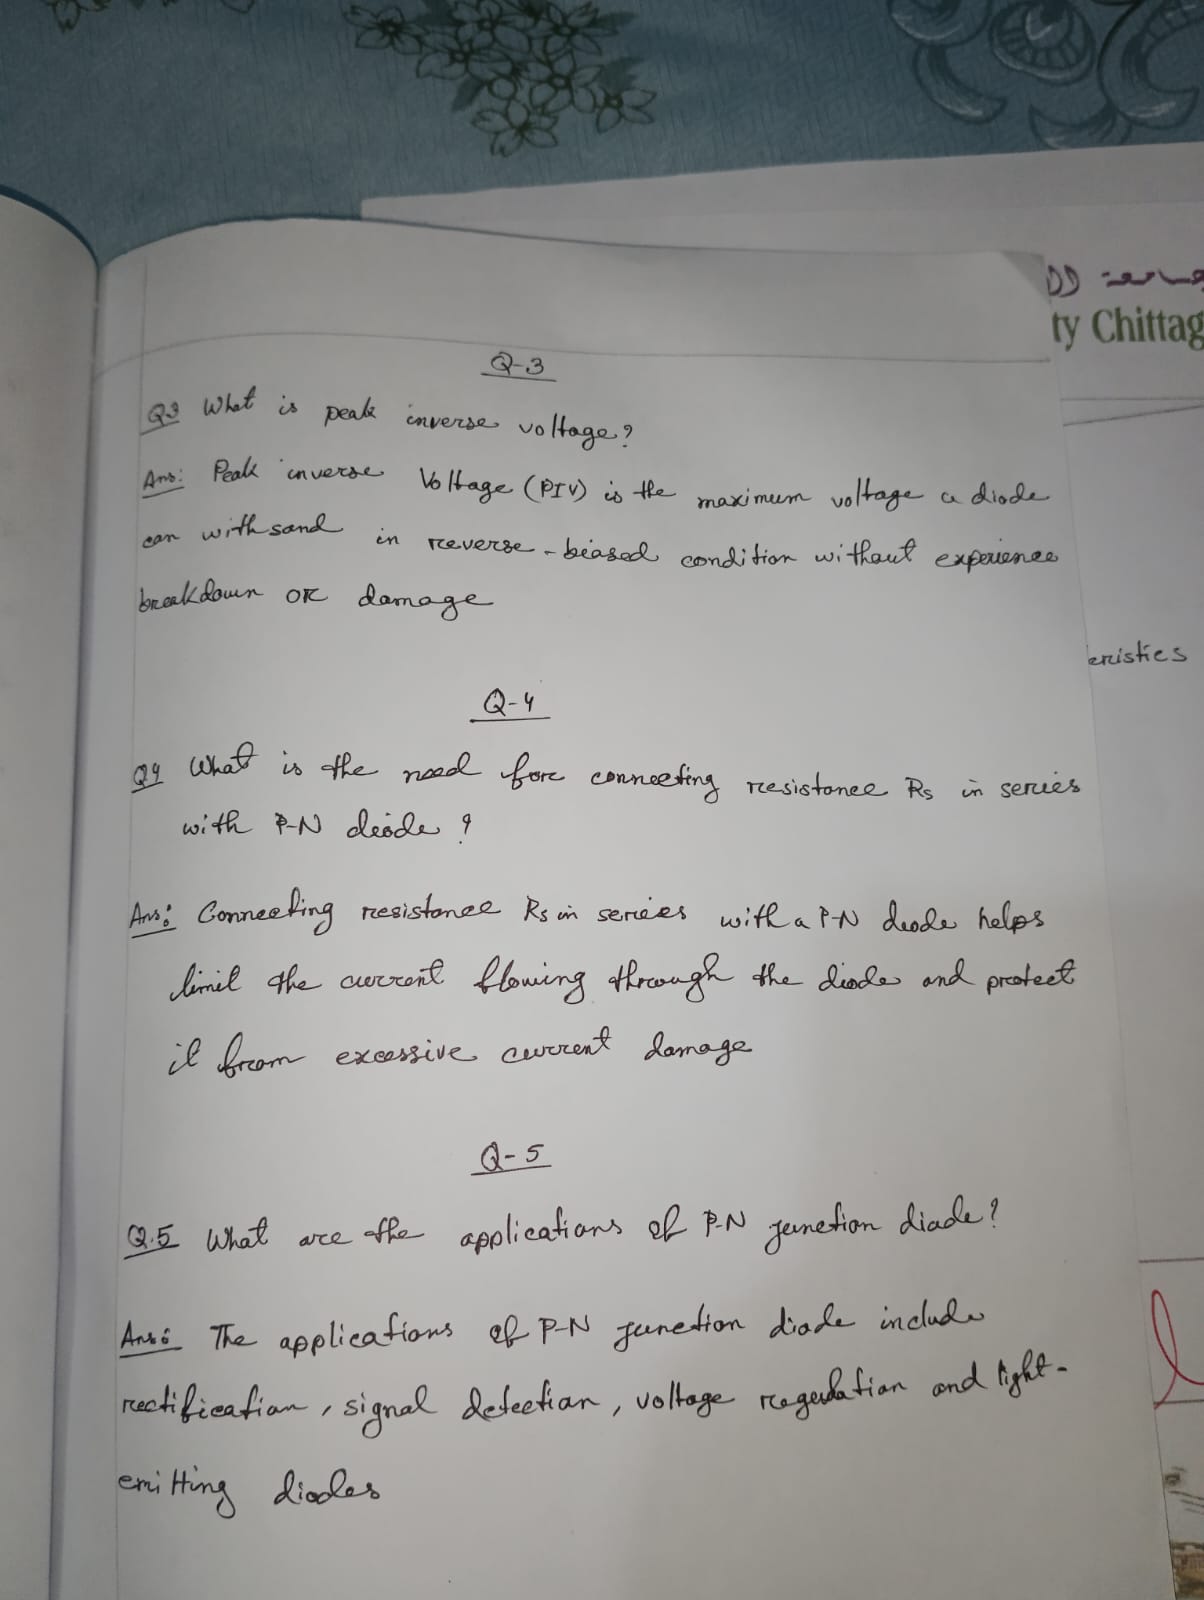 جامعة الد
ty Chittag
Q-3
Q3 What is peak inverse voltage?
Ans: Peak inverse Voltage (PIV) is the maximum voltage a diode
can withsand in reverse-biased condition without experience
breakdown or damage
eristics
Q-4
Q4 What is the need for connecting resistance Rs in series
with P-N diode?
Ans: Connecting resistance Rs in series with a P-N diode helps
limit the current flowing through the diode and protect
it from excessive current damage
Q-5
Q.5 What are the applications of P-N junction diode?
Ans: The applications of P-N junction diode include
rectification, signal detection, voltage regulation and light-
emitting diodes